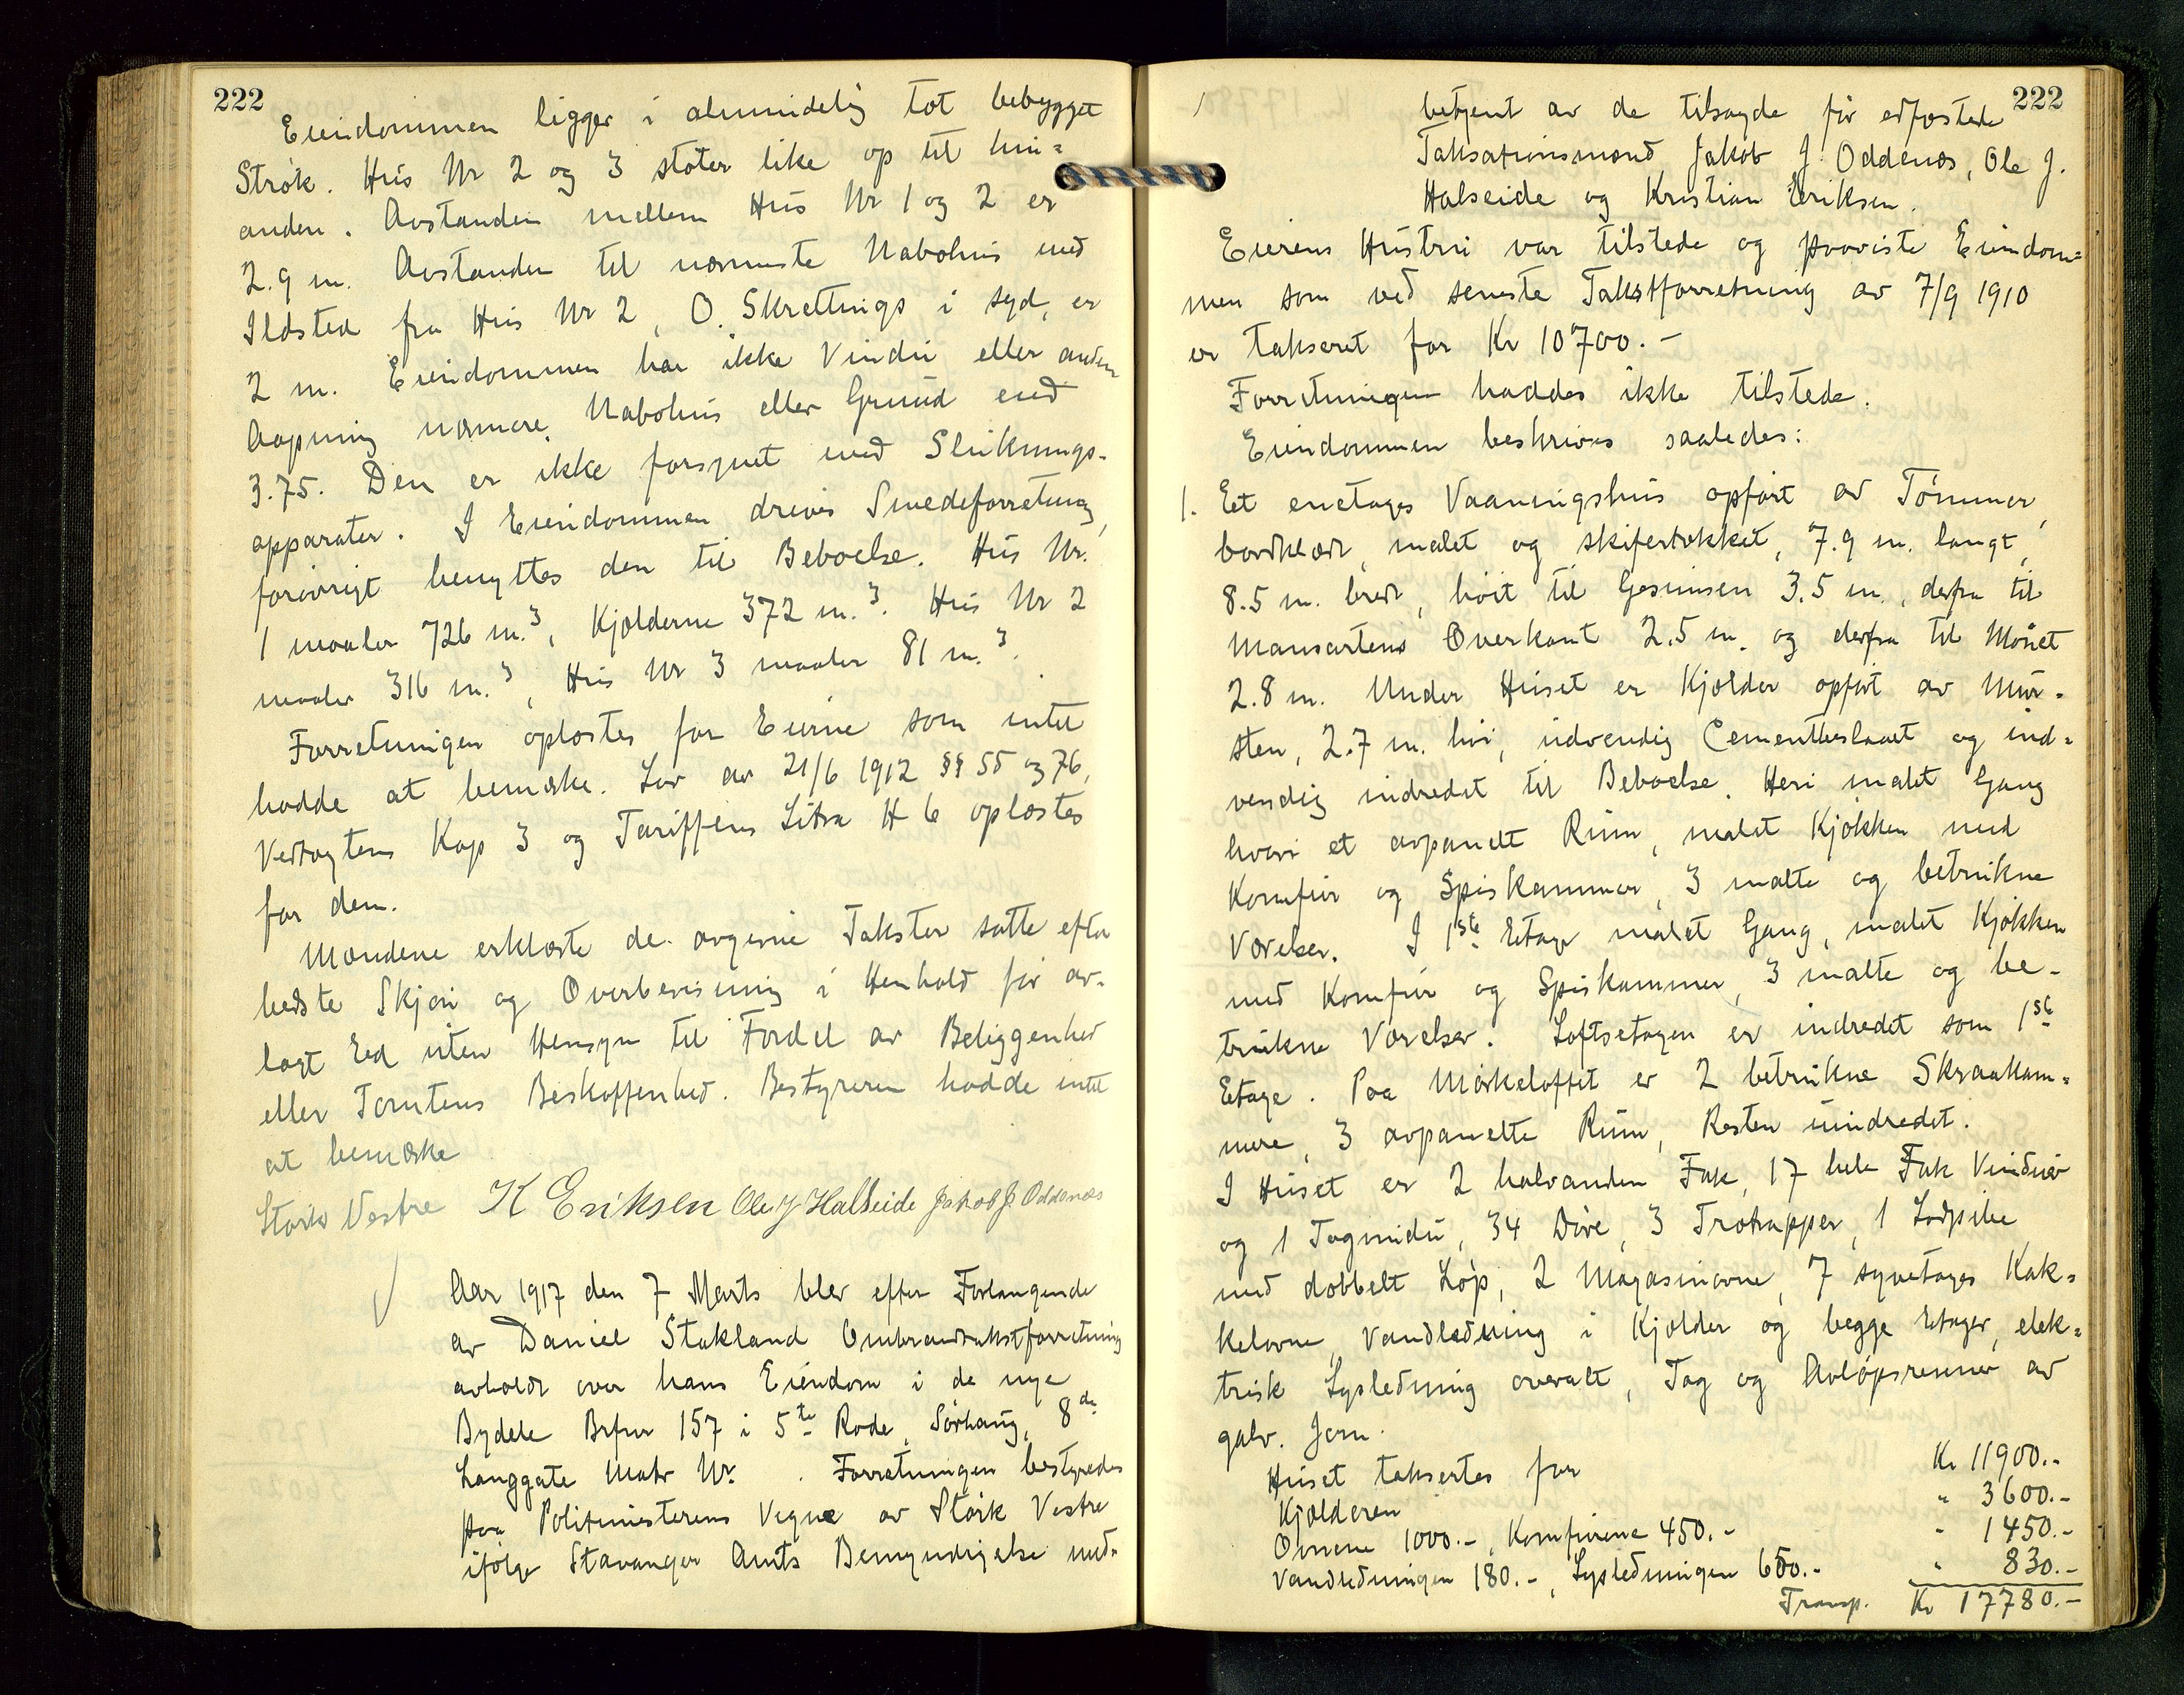 222
Eiendommen ligger i almindelig tæt bebygget
Strøk. Hus Nr 2 og 3 støter like op til hin=
anden. Avstanden mellem Hus Nr 1 og 2 er
2.9 m. Avstanden til nærmeste Nabohus med
Ildsted fra Hus Nr 2, O. Skrettings i syd, er
2 m. Eiendommen har ikke Vindu eller anden
Aapning nærmere Nabohus eller Grund end
3.75. Den er ikke forsynet med Sluknings-
apparater. I Eiendommen drives Smedeforretning,
forøvrigt benyttes den til Beboelse. Hus Nr.
1 maaler 726 m.³, Kjælderne 372 m.³. Hus Nr 2
maaler 316 m.³, Hus Nr 3 maaler 81 m.³.
Forretningen oplæstes for Eierne som intet
hadde at bemærke. Lov av 21/6 1912 §§ 55 og 76,
Vedtægtens Kap 3 og Tariffens Litra H 6 oplæstes
for dem.
Mændene erklærte de avgivne Takster satte efter
bedste Skjøn og Overbevisning i Henhold før av-
lagt Ed uten Hensyn til Fordel av Beliggenhet
eller Tomtens Beskaffenhed. Bestyreren hadde intet
at bemærke
Stork Vestre K Eriksen Ole J Halseide Jakob J. Oddenæs
Aar 1917 den 7 Marts blev efter Forlangende
av Daniel Stakland Ombrandtakstforretning
avholdt over hans Eiendom i de nye
Bydele Brfnr 157 i 5te Rode, Sørhaug, 8de
Langgate Matr Nr. . Forretningen bestyredes
paa Politimesterens Vegne av Stork Vestre
ifølge Stavanger Amts Bemyndigelse med-
222
betjent av de tilsagde før edfæstede
Taksationsmænd Jakob J. Oddenæs, Ole J.
Halseide og Kristian Eriksen.
Eierens Hustru var tilstede og paaviste Eiendom=
men som ved seneste Takstforretning av 7/9 1910
er takseret for Kr 10700.-
Forretningen haddes ikke tilstede.
Eiendommen beskrives saaledes:
1. Et enetages Vaaningshus opført av Tømmer,
bordklædt, malet og skifertækket, 7.9 m. langt,
8.5 m. bredt, høit til Gesimsen 3.5 m., derfra til
Mansartens Overkant 2.5 m. og derfra til Mønet
2.8 m. Under Huset er Kjælder opført av Mur-
sten, 2.7 m. høi, udvendig Cementbeslaaet og ind=
vendig indredet til Beboelse. Heri malet Gang
hvori et avpanelt Rum, malet Kjøkken med
Komfur og Spiskammer, 3 malte og betrukne
Værelser. I 1ste Etage malet Gang, malet Kjøkken
med Komfur og Spiskammer, 3 malte og be-
trukne Værelser. Loftsetagen er indredet som 1ste
Etage. Paa Mørkeloftet er 2 betrukne Skraakam=
mere, 3 avpanelte Rum, Resten uindredet.
I Huset er 2 halvanden Fak, 17 hele Fak Vinduer
og 1 Tagvindu, 34 Døre, 3 Trætrapper, 1 Lodpibe
med dobbelt Løp, 2 Magasinovne, 7 syvetages Kak=
kelovne, Vandledning i Kjælder og begge Etager, elek=
trisk Lysledning overalt, Tag og Avløpsrenner av
galv. Jern.
Huset takseres for Kr 11900.-
Kjælderen " 3600.-
Ovnene 1000.-, Komfurene 450.- " 1450.-
Vandledningen 180.-, Lysledningen 650.- " 830.-
Transp. Kr 17780.-